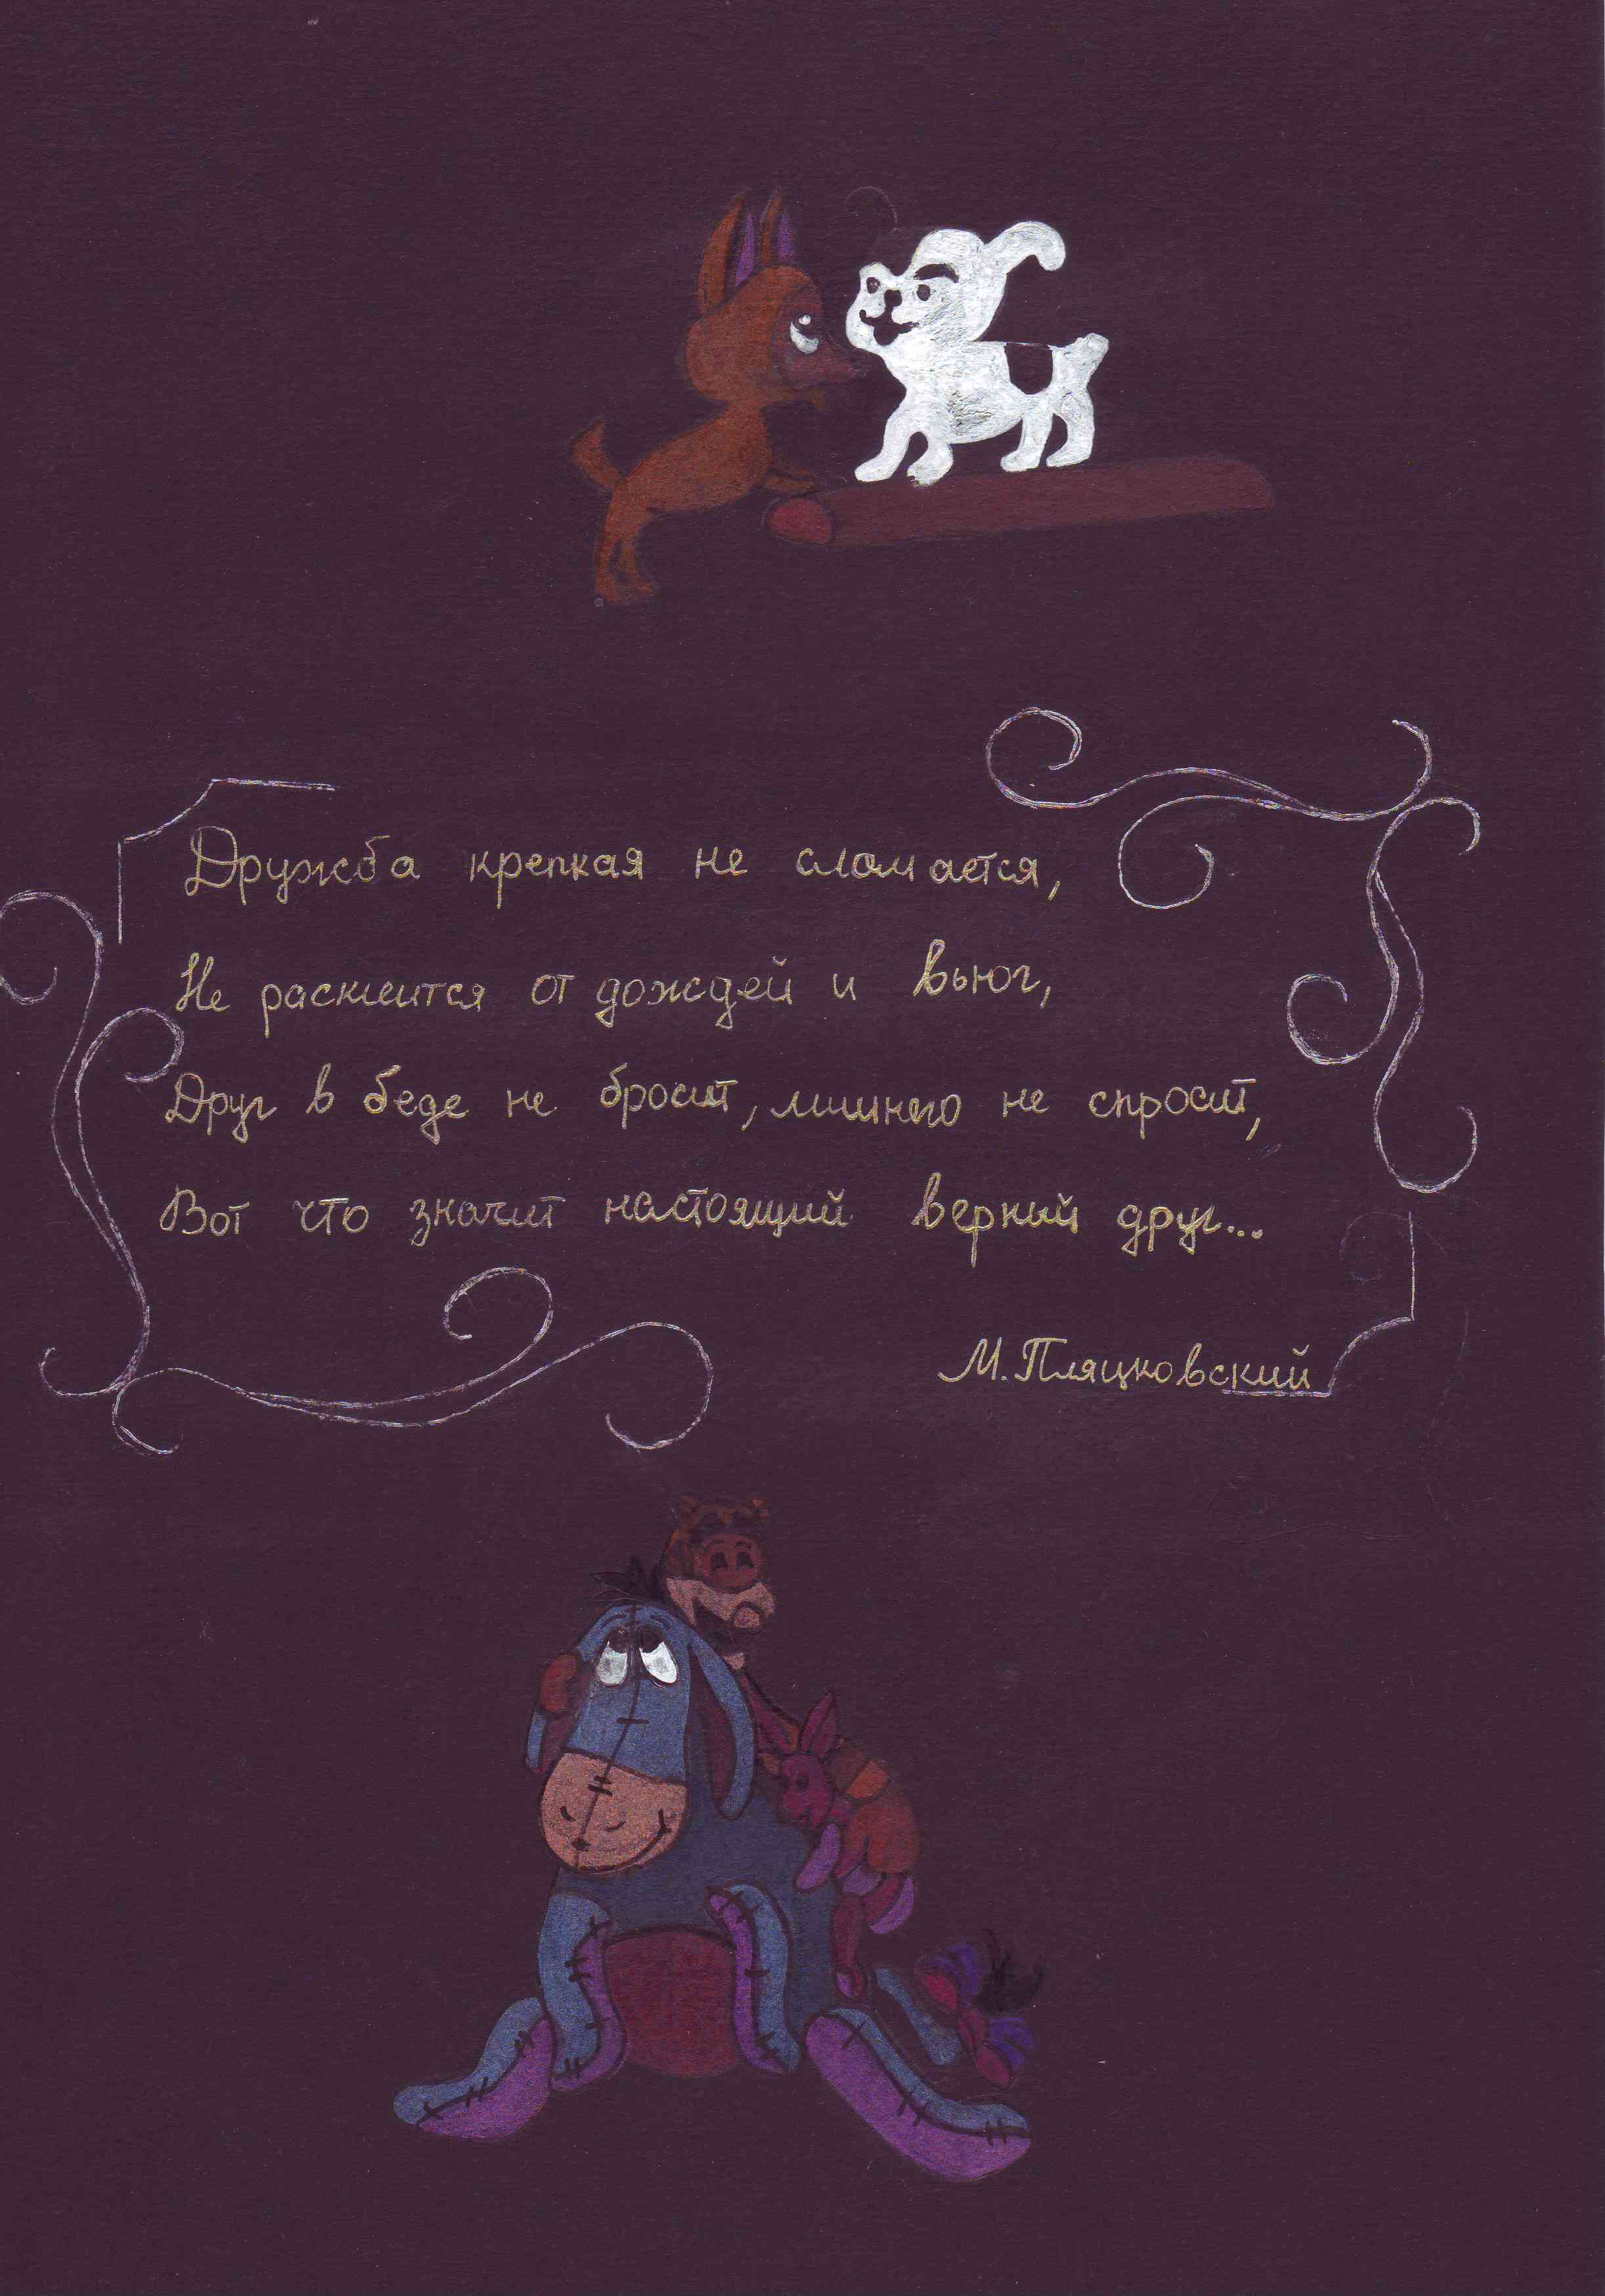 Дружба крепкая не сломается,
Не расклеится от дождей и вьюг,
Друг в беде не бросит, лишнего не спросит,
Вот что значит настоящий верный друг...
М. Пляцковский